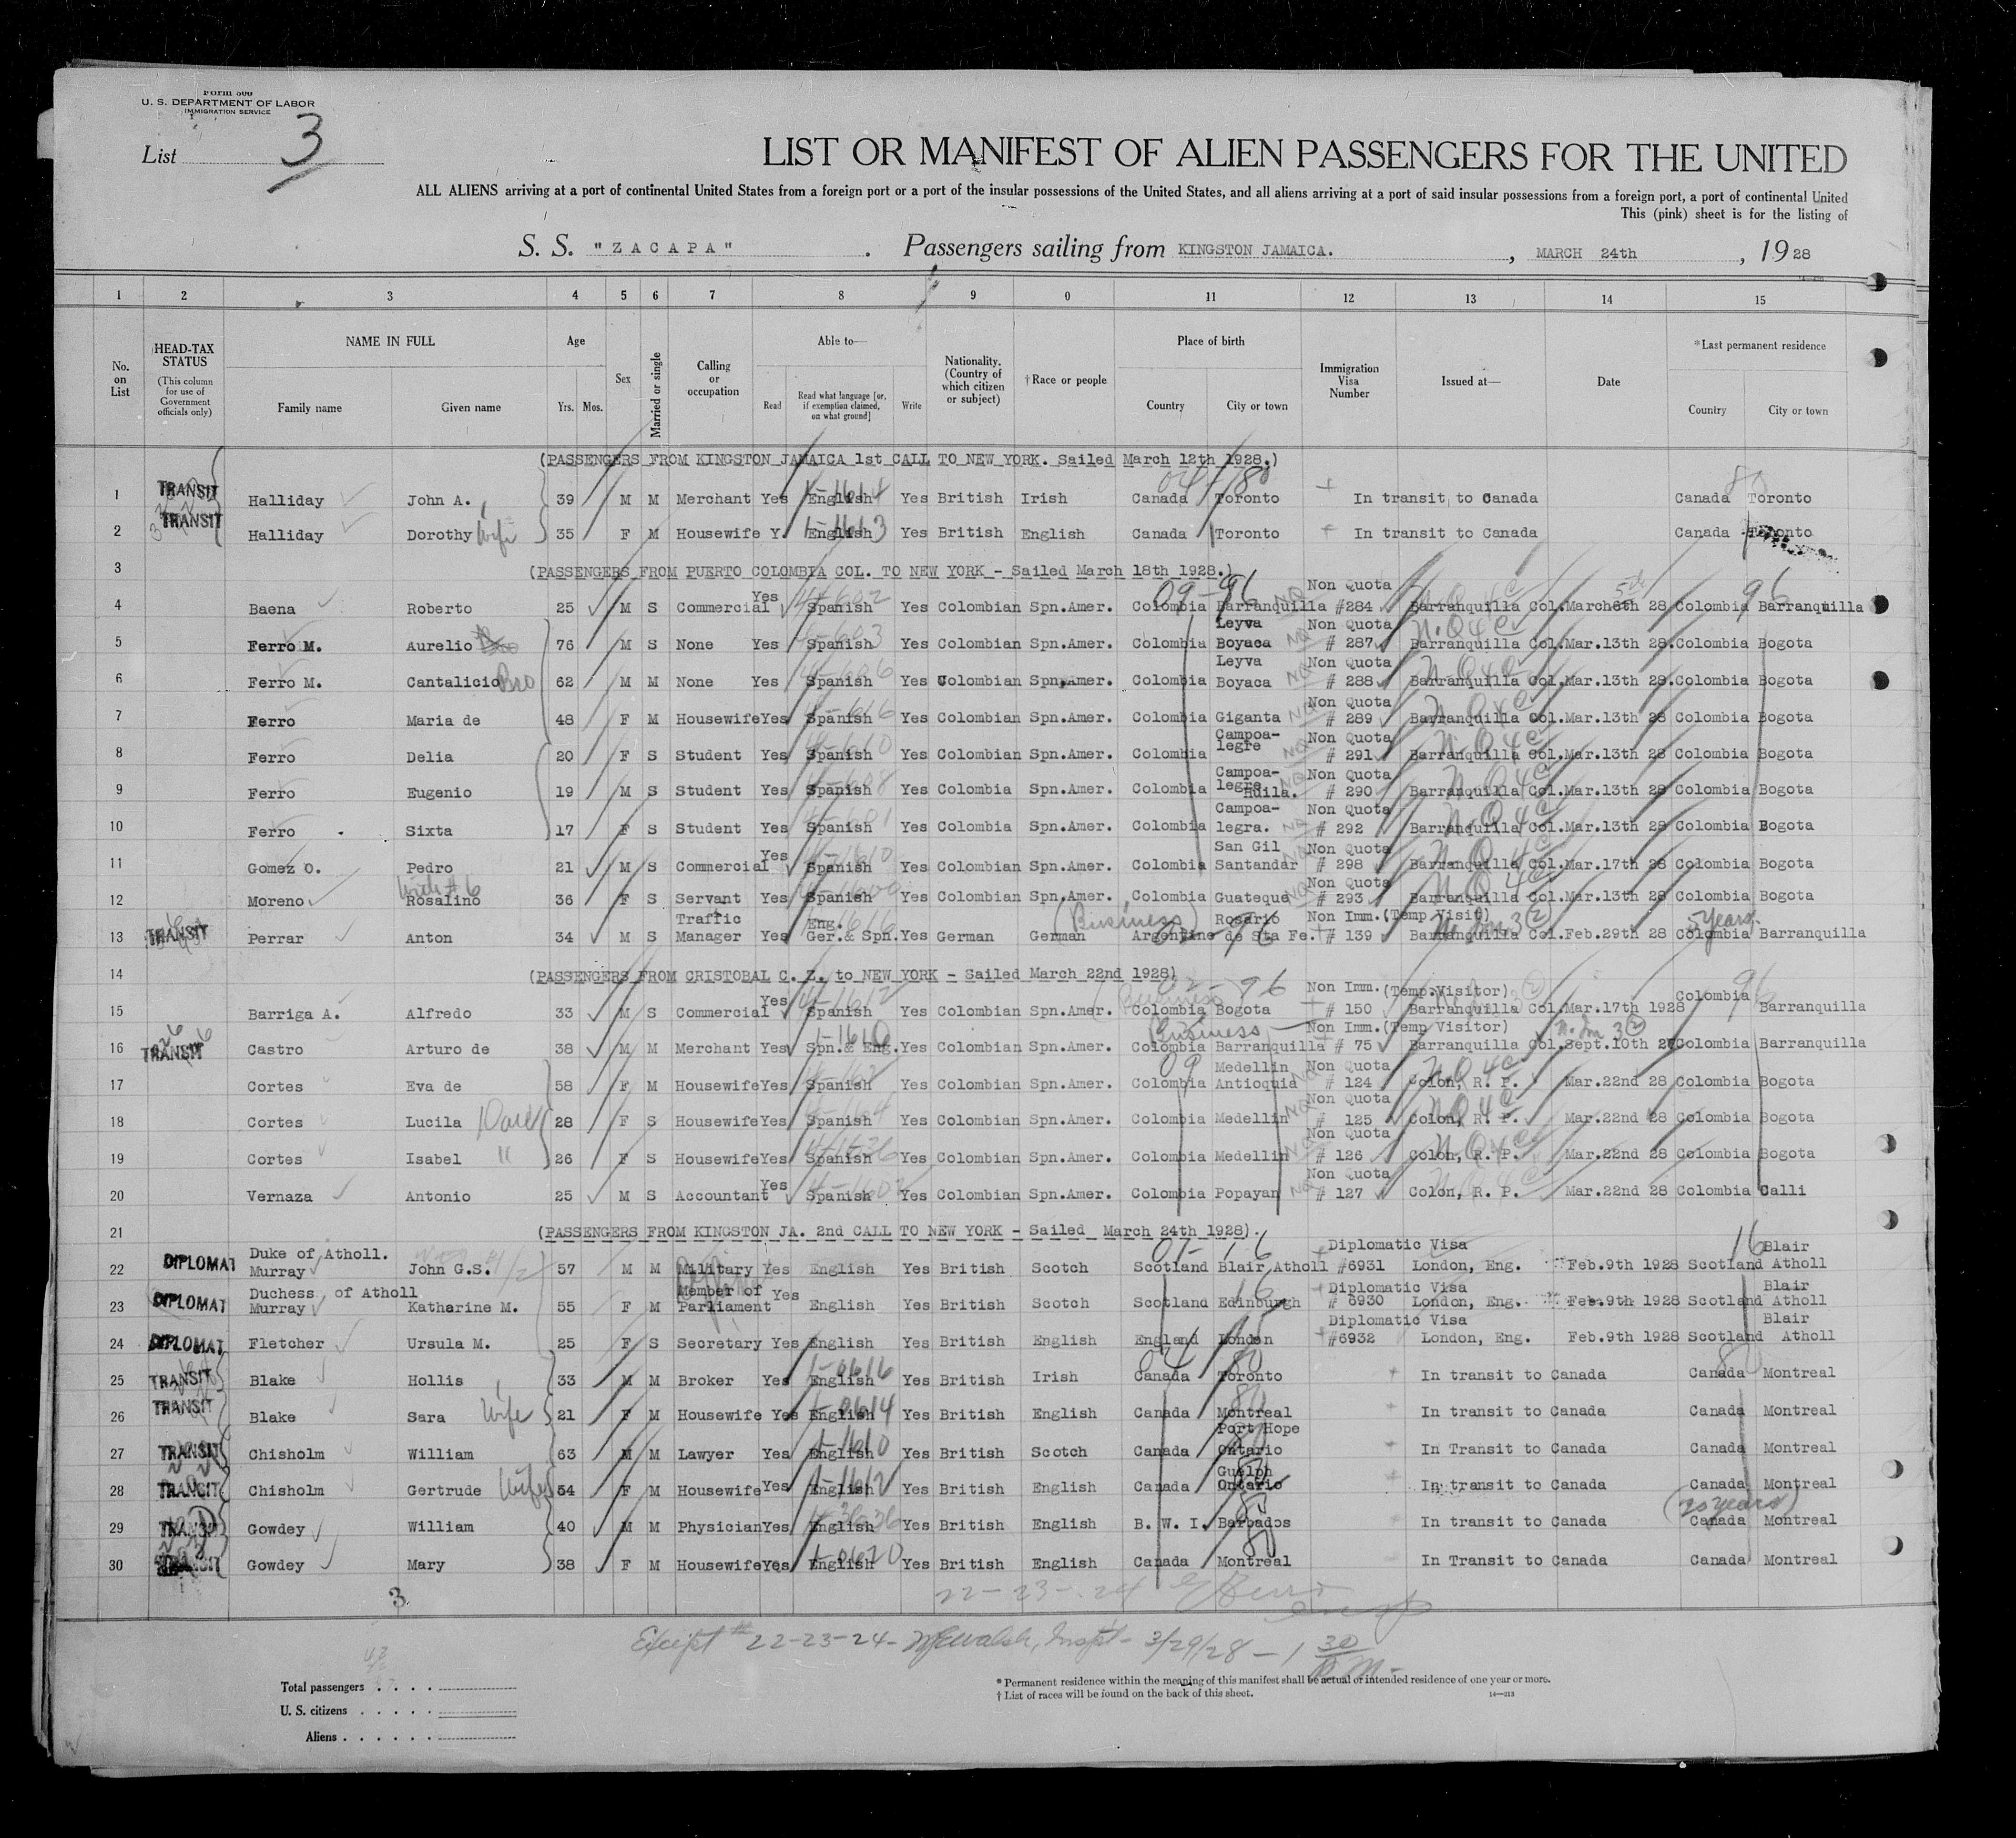 Form 500
U. S. DEPARTMENT OF LABOR
IMMIGRATION SERVICE
List 3
LIST OR MANIFEST OF ALIEN PASSENGERS FOR THE UNITED
ALL ALIENS arriving at a port of continental United States from a foreign port or a port of the insular possessions of the United States, and all aliens arriving at a port of said insular possessions from a foreign port, a port of continental United
This (pink) sheet is for the listing of
S. S. "ZACAPA". Passengers sailing from KINGSTON JAMAICA., MARCH 24th, 1928
1 2 3 4 5 6 7 8 9 0 11 12 13 14 15
No. on List
HEAD-TAX STATUS (This column for use of Government officials only)
NAME IN FULL Family name Given name
Age Yrs. Mos.
Sex
Married or single
Calling or occupation
Able to— Read Read what language [or, if exemption claimed, on what ground] Write
Nationality. (Country of which citizen or subject)
†Race or people
Place of birth Country City or town
Immigration Visa Number
Issued at—
Date
*Last permanent residence Country City or town
(PASSENGERS FROM KINGSTON JAMAICA 1st CALL TO NEW YORK. Sailed March 12th 1928.)
1 TRANSIT Halliday John A. 39 M M Merchant Yes English Yes British Irish Canada Toronto In transit to Canada Canada Toronto
2 TRANSIT Halliday Dorothy wife 35 F M Housewife Y. English Yes British English Canada Toronto In transit to Canada Canada Toronto
3 (PASSENGERS FROM PUERTO COLOMBIA COL. TO NEW YORK - Sailed March 18th 1928.)
4 Baena Roberto 25 M S Commercial Yes Spanish Yes Colombian Spn.Amer. Colombia Barranquilla Non Quota #284 Barranquilla Col. March 8th 28 Colombia Barranquilla
5 Ferro M. Aurelio 76 M S None Yes Spanish Yes Colombian Spn.Amer. Colombia Leyva Boyaca Non Quota # 287 Barranquilla Col. Mar.13th 28. Colombia Bogota
6 Ferro M. Cantalicio Bro 62 M M None Yes Spanish Yes Colombian Spn.Amer. Colombia Leyva Boyaca Non Quota # 288 Barranquilla Col. Mar.13th 28. Colombia Bogota
7 Ferro Maria de 48 F M Housewife Yes Spanish Yes Colombian Spn.Amer. Colombia Giganta Non Quota # 289 Barranquilla Col. Mar.13th 28 Colombia Bogota
8 Ferro Delia 20 F S Student Yes Spanish Yes Colombian Spn.Amer. Colombia Campoa-legre Non Quota # 291 Barranquilla Col. Mar.13th 28 Colombia Bogota
9 Ferro Eugenio 19 M S Student Yes Spanish Yes Colombia Spn.Amer. Colombia Campoa-legre Huila. Non Quota # 290 Barranquilla Col. Mar.13th 28 Colombia Bogota
10 Ferro Sixta 17 F S Student Yes Spanish Yes Colombia Spn.Amer. Colombia Campoa-legra. Non Quota # 292 Barranquilla Col. Mar.13th 28 Colombia Bogota
11 Gomez O. Pedro 21 M S Commercial Yes Spanish Yes Colombian Spn.Amer. Colombia San Gil Santandar Non Quota # 298 Barranquilla Col. Mar.17th 28 Colombia Bogota
12 Moreno with #6 Rosalino 36 F S Servant Yes Spanish Yes Colombian Spn.Amer. Colombia Guateque Non Quota # 293 Barranquilla Col. Mar.13th 28 Colombia Bogota
13 TRANSIT Perrar Anton 34 M S Traffic Manager Yes Eng. Ger.& Spn. Yes German German (Business) Argentine Rosario de Sta Fe. Non Imm.(Temp Visit) # 139 Barranquilla Col. Feb.29th 28 5 years. Colombia Barranquilla
14 (PASSENGERS FROM CRISTOBAL C. Z. to NEW YORK - Sailed March 22nd 1928)
15 Barriga A. Alfredo 33 M S Commercial Yes Spanish Yes Colombian Spn.Amer. (Business Colombia Bogota Non Imm.(Temp.Visitor) # 150 Barranquilla Col. Mar.17th 1928 Colombia Barranquilla
16 TRANSIT Castro Arturo de 38 M M Merchant Yes Spn.& Eng. Yes Colombian Spn.Amer. Business Colombia Barranquilla Non Imm.(Temp Visitor) # 75 Barranquilla Col. Sept.10th 27 Colombia Barranquilla
17 Cortes Eva de 58 F M Housewife Yes Spanish Yes Colombian Spn.Amer. Colombia Medellin Antioquia Non Quota # 124 Colon, R. P. Mar.22nd 28 Colombia Bogota
18 Cortes Lucila 28 F S Housewife Yes Spanish Yes Colombian Spn.Amer. Colombia Medellin Non Quota # 125 Colon, R. P. Mar.22nd 28 Colombia Bogota
19 Cortes Isabel " 26 F S Housewife Yes Spanish Yes Colombian Spn.Amer. Colombia Medellin Non Quota # 126 Colon, R. P. Mar.22nd 28 Colombia Bogota
20 Vernaza Antonio 25 M S Accountant Yes Spanish Yes Colombian Spn.Amer. Colombia Popayan Non Quota # 127 Colon, R. P. Mar.22nd 28 Colombia Calli
21 (PASSENGERS FROM KINGSTON JA. 2nd CALL TO NEW YORK - Sailed March 24th 1928).
22 DIPLOMAT Duke of Atholl. Murray John G.S. 57 M M Military Yes English Yes British Scotch Scotland Blair Atholl Diplomatic Visa #6931 London, Eng. Feb.9th 1928 Scotland Blair Atholl
23 DIPLOMAT Duchess of Atholl Murray Katharine M. 55 F M Member of Parliament Yes English Yes British Scotch Scotland Edinburgh Diplomatic Visa # 6930 London, Eng. Feb.9th 1928 Scotland Blair Atholl
24 DIPLOMAT Fletcher Ursula M. 25 F S Secretary Yes English Yes British English England London Diplomatic Visa #6932 London, Eng. Feb.9th 1928 Scotland Blair Atholl
25 TRANSIT Blake Hollis 33 M M Broker Yes English Yes British Irish Canada Toronto In transit to Canada Canada Montreal
26 TRANSIT Blake Sara wife 21 F M Housewife Yes English Yes British English Canada Montreal In transit to Canada Canada Montreal
27 TRANSIT Chisholm William 63 M M Lawyer Yes English Yes British Scotch Canada Port Hope Ontario In Transit to Canada Canada Montreal
28 TRANSIT Chisholm Gertrude wife 54 F M Housewife Yes English Yes British English Canada Guelph Ontario In transit to Canada Canada Montreal
29 TRANSIT Gowdey William 40 M M Physician Yes English Yes British English B. W. I. Barbados In transit to Canada (20 years) Canada Montreal
30 TRANSIT Gowdey Mary 38 F M Housewife Yes English Yes British English Canada Montreal In Transit to Canada Canada Montreal
3
22-23-24
Except # 22-23-24- Inspt- 3/29/28 - 1 30
Total passengers
U. S. citizens
Aliens
* Permanent residence within the meaning of this manifest shall be actual or intended residence of one year or more.
† List of races will be found on the back of this sheet.
14—213